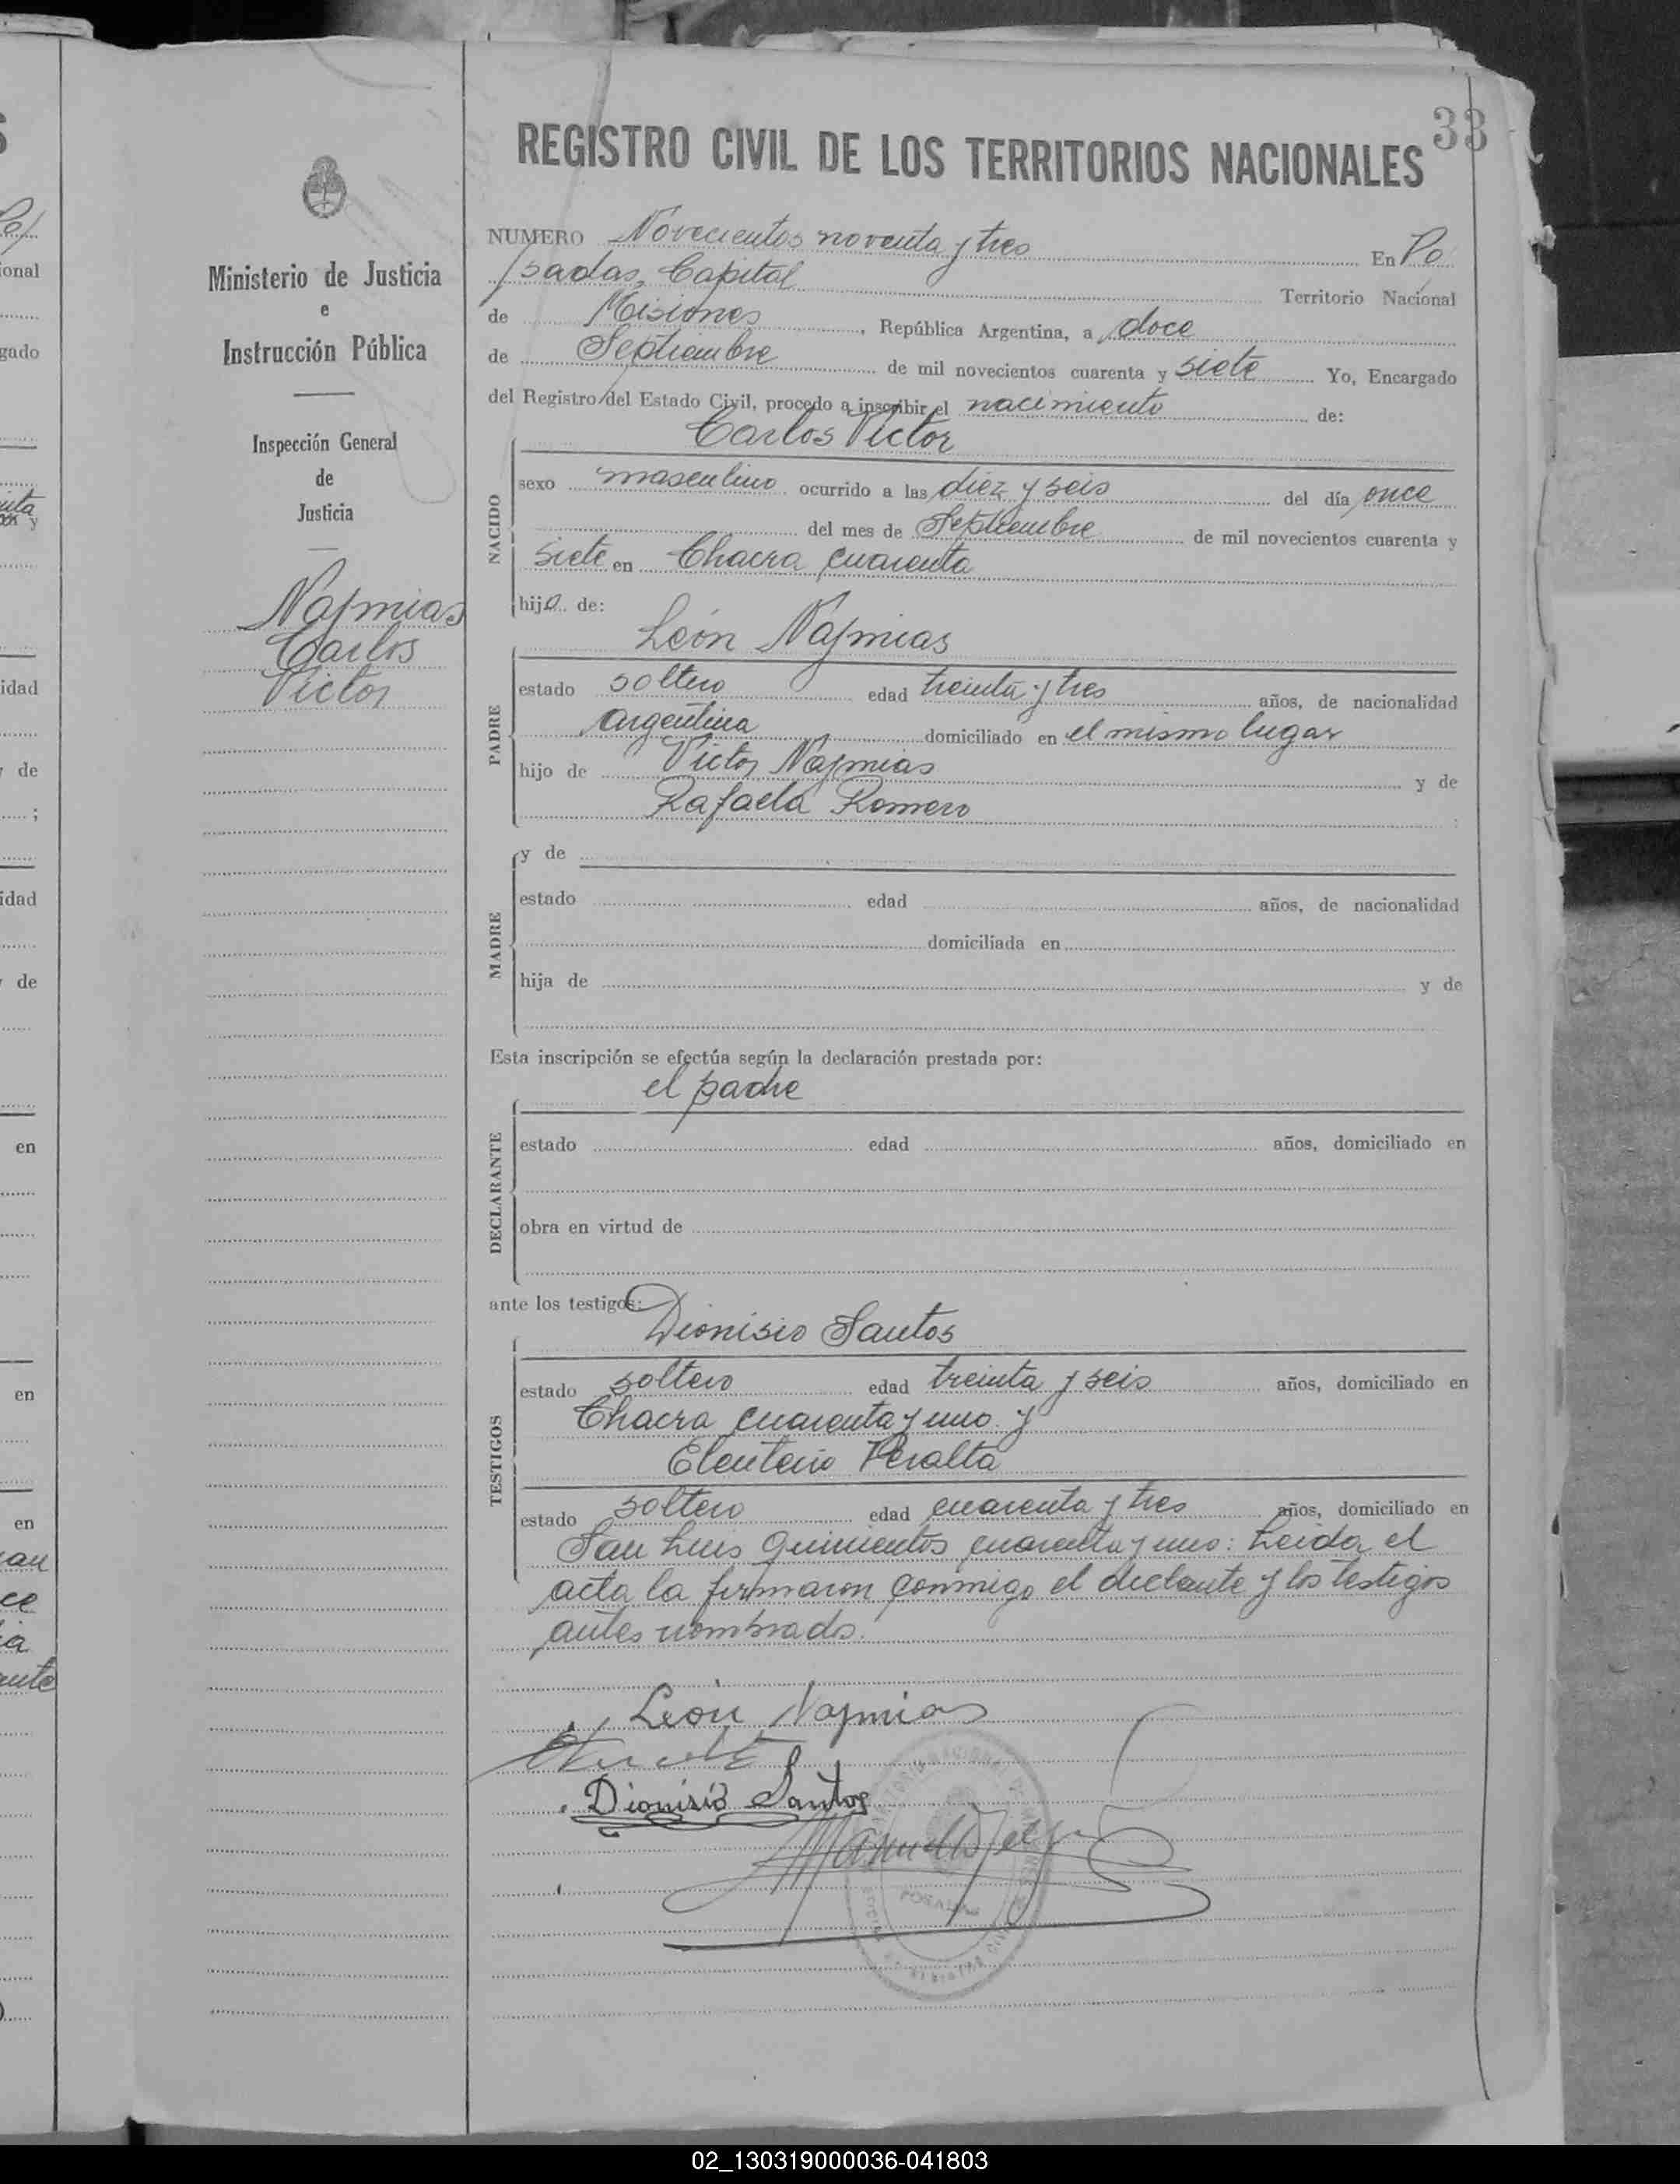 33
REGISTRO CIVIL DE LOS TERRITORIOS NACIONALES
Ministerio de Justicia
e
Instrucción Pública
Inspección General
de
Justicia
Najmias
Carlos
Victor
NUMERO Novecientos noventa y tres En Po
sadas, Capital Territorio Nacional
de Misiones, República Argentina, a doce
de Septiembre de mil novecientos cuarenta y siete Yo, Encargado
del Registro del Estado Civil, procedo a inscribir el nacimiento de:
NACIDO
Carlos Victor
sexo masculino ocurrido a las diez y seis del día once
del mes de Septiembre de mil novecientos cuarenta y
siete en Chacra cuarenta
hijo de:
PADRE
León Najmias
estado soltero edad treinta y tres años, de nacionalidad
argentina domiciliado en el mismo lugar
hijo de Victor Najmias y de
Rafaela Romero
MADRE
y de
estado edad años, de nacionalidad
domiciliada en
hija de y de
Esta inscripción se efectúa según la declaración prestada por:
el padre
DECLARANTE
estado edad años, domiciliado en
obra en virtud de
ante los testigos:
TESTIGOS
Dionisio Santos
estado soltero edad treinta y seis años, domiciliado en
Chacra cuarenta y uno y
Eleuterio Peralta
estado soltero edad cuarenta y tres años, domiciliado en
San Luis quinientos cuarenta y uno: Leida el
acta la firmaron conmigo el declante y los testigos
antes nombrado.
León Najmias
Dionisio Santos
POSADAS
02_130319000036-041803